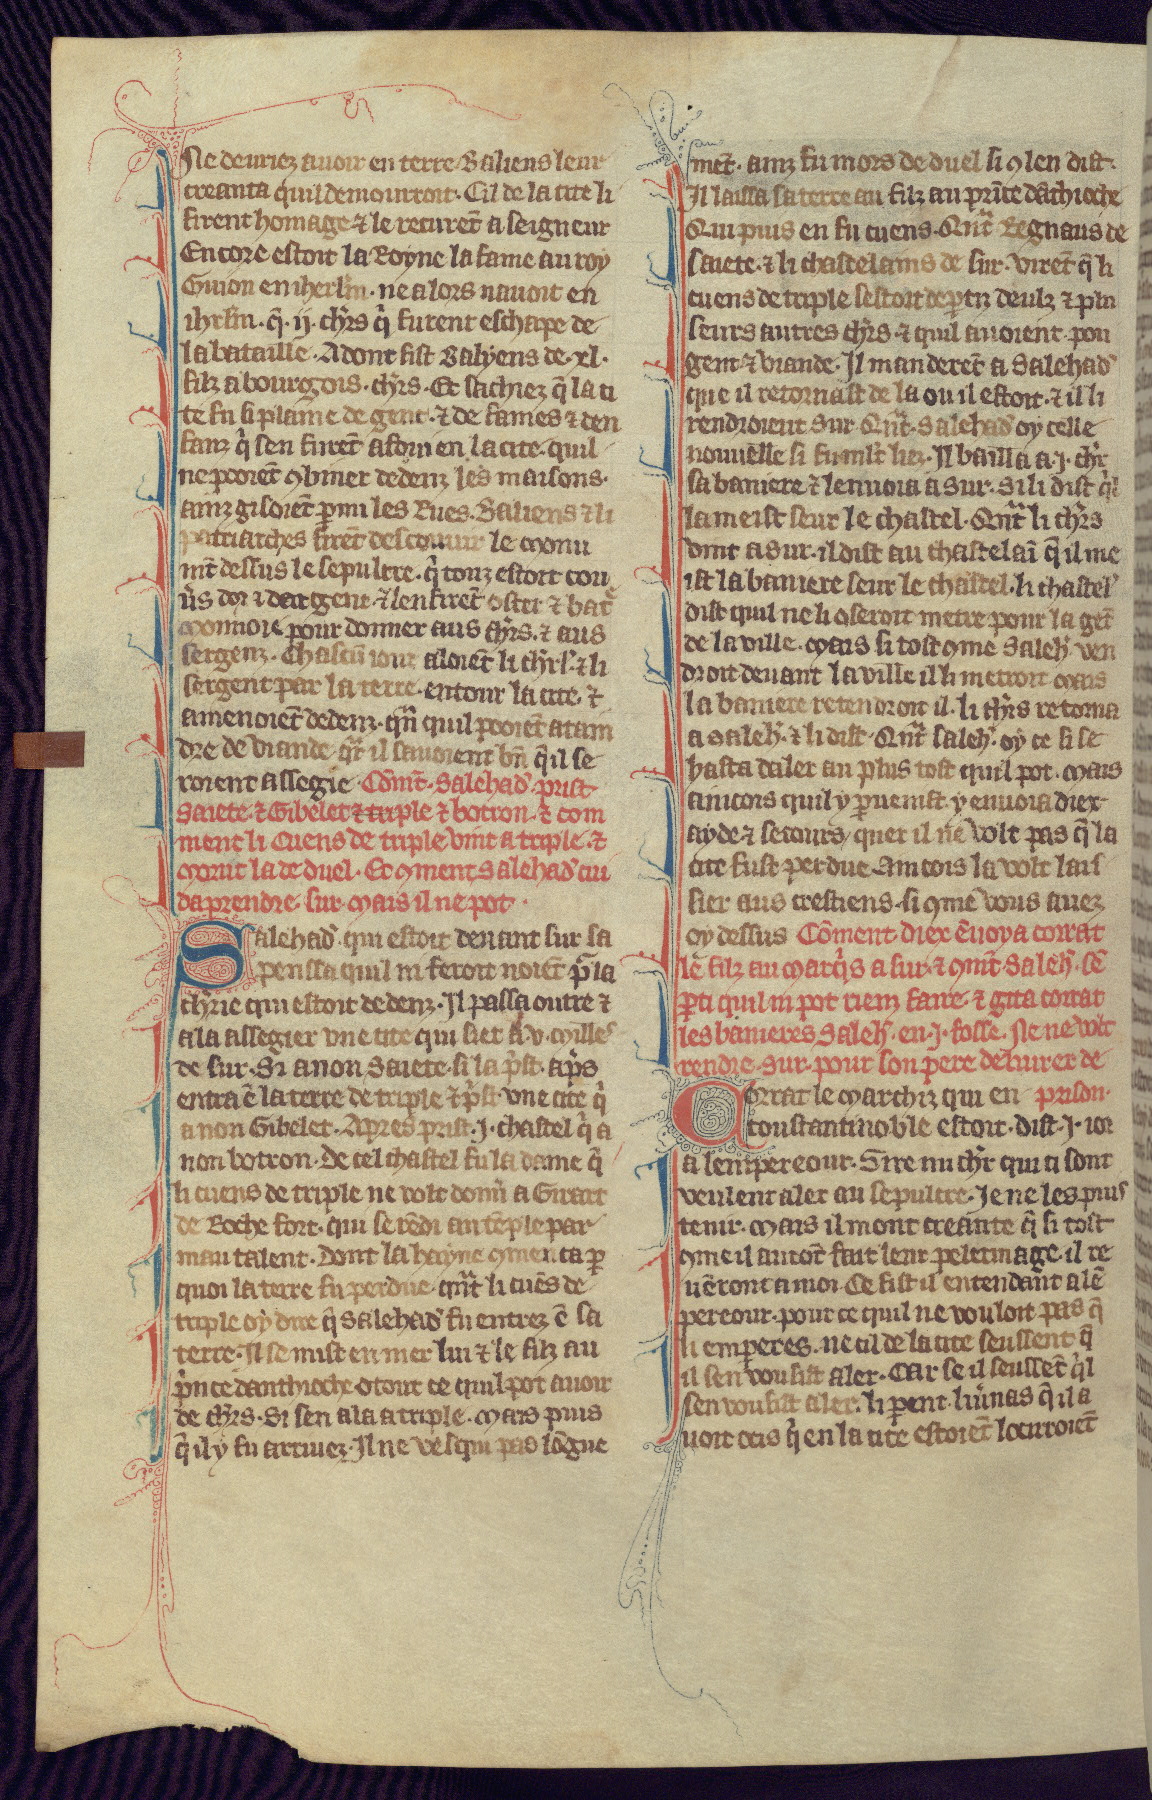 Ne deuriez auoir en terre. Baliens leur
creanta quil demouroit. Cil de la cite li
firent homage ⁊ le recurēt a seigneur
Encore estoit la Royne la fame au roy
Guion en iherlm̄. ne alors nauoit en
ihrl̄m. q̄. ij. ch'rs q̄ furent eschape de
la bataille. Adont fist Balyens de .xl.
filz a bourgois. ch'rs. Et sachiez q̄ la ci
te fu si plaine de gent. ⁊ de fames ⁊ den
fanz q̄ sen furēt afoui en la cite. quil
ne pooiēt ꝯbiner dedenz les maisons.
ainz gisoiēt ꝑmi les Rues. Baliens ⁊ li
patriarches firēt descouurir le monu
mt̄ dessus le sepulcre. q̄ touz estoit cou
u's dor ⁊ dargent. ⁊ len firēt oster ⁊ bat̄
monnoie pour donner aus ch'rs. ⁊ aus
sergenz. Chascū iour aloiēt li ch'rs. ⁊ li
sergent par la terre. entour la cite. ⁊
amenoiēt dedenz. qn̄ quil pooiēt atain
dre de viande. q̄r il sauoient bn̄ q̄ il se
roient assegie. Cōmt̄. Salehad'. prist.
Saiete. ⁊ Gibelet ⁊ triple ⁊ botron. ⁊ com
ment li Cuens de triple vint a triple. ⁊
morut la de duel. Et ꝯment Salehad' cui
da prendre. sur. mais il ne pot.
Salehad'. qui estoit deuant sur sa
penssa quil ni feroit noiēt p̄ la
ch'rie qui estoit dedenz. Il passa outre ⁊
ala assegier vne cite qui siet a .v. milles
de sur. Si a non Saiete. si la p̄st. ap̄s
entra ē la terre de triple ⁊ p̄st vne cite q̄
a non Gibelet. Apres prist .j. chastel q̄ a
non botron. De cel chastel fu la dame q̄
li cuens de triple ne volt doner a Girart
de Roche fort. qui se rēdi au tēple par
mau talent. Dont la hayne ꝯmenca ꝑ
quoi la terre fu perdue. qn̄t li cuēs de
triple oy dire q̄ Salehad' fu entrez ē sa
terre. Il se mist en mer lui ⁊ le filz au
p̄nce danthioche. o tout ce quil pot auoir
de ch'rs. Si sen ala a triple. mais puis
q̄ il y fu arriuez. Il ne vesqui pas lōgue
met̄. ainz fu mors de duel si ꝯ len dist.
Il laissa sa terre au filz au prīce dāthioche
Qui puis en fu cuens. Qn̄t Regnaus de
saiete. ⁊ li chastelains de sur. virēt q̄ li
cuens de triple sestoit dep̄ti deulz ⁊ plu
seurs autres ch'rs. ⁊ quil auoient pou
gent ⁊ viande. Il manderēt a Salehad'
que il retornast de la ou il estoit. ⁊ il li
rendroient sur. Qn̄t. Salehad' oy celle
nouuelle si fu ml̄t liez. Il bailla a .j. ch'r
sa baniere ⁊ lenuoia a sur. Si li dist q̄l
la meist seur le chastel. Qn̄t li ch'rs
vint a sur. il dist au chastelaī q̄ il me
ist la baniere seur le chastel. li chastel'
dist quil ne li oseroit metre pour la gēt
de la ville. mais si tost ꝯme Saleh'. ven
droit deuant la ville il li metroit mais
la baniere retendroit il. li ch'rs retorna
a saleh'. ⁊ li dist. Qn̄t saleh'. oy ce si se
hasta daler au plus tost quil pot. mais
aincois quil y ꝑuenist. y enuoia diex
ayde ⁊ secours. quer il ne volt pas q̄ la
cite fust perdue. Aincois la volt lais
sier aus crestiens. si ꝯme vous auez
oy dessus Cōment diex ēuoya corrat
le filz au marq̄s a sur. ⁊ ꝯmt̄. Saleh'. sē
ꝑti quil ni pot riens faire. ⁊ gita corrat
les banieres Saleh'. en .j. fosse. Ne ne volt
rendre. sur. pour son pere deliurer de
prison.
Corrat le marchiz qui en
coustantinoble estoit. dist .j. ior
a lempereour. Sire mi ch'r qui ci sont
veulent aler au sepulcre. Je ne les puis
tenir. mais il mont creante q̄ si tost
ꝯme il auront fait leur pelerinage. il re
uēront a moi. Ce fist il entendant a lē
pereour. pour ce quil ne vouloit pas q̄
li emperes. ne cil de la cite seussent q̄
il sen vousist aler. Car se il seussēt q̄l
sen vousist aler. li parent liuernas q̄ il a
uoit ocis q̄ en la cite estoiēt locirroiēt